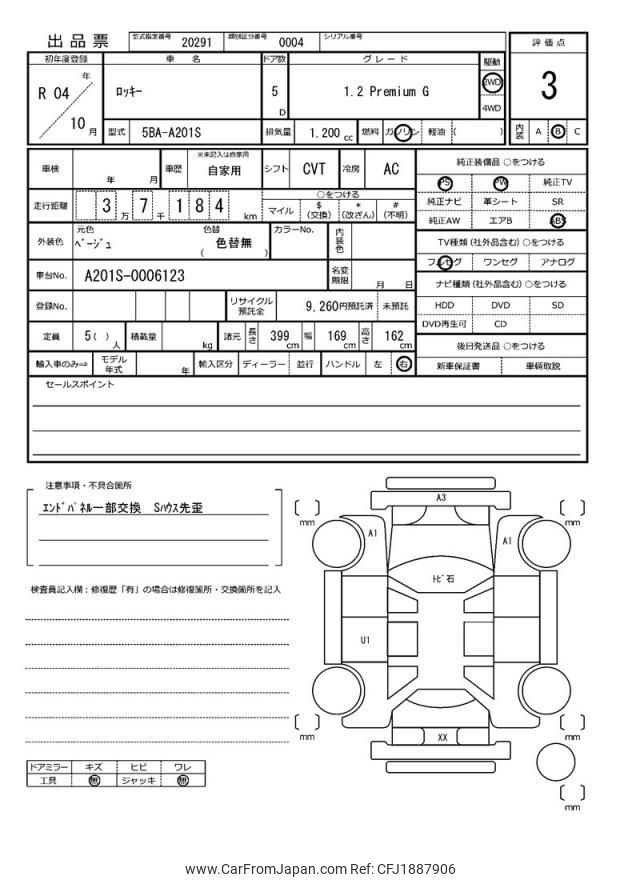 出品票
型式指定番号 20291 類別区分番号 0004 シリアル番号
評価点
3
初年度登録 車名 ドア数 グレード 駆動
R 04 年 10 月
ロッキー
5 D
1.2 Premium G
2WD
4WD
型式 5BA-A201S 排気量 1,200 cc 燃料 ガソリン 軽油 ( )
内装 A B C
車検 年 月
車歴 ※未記入は自家用 自家用
シフト CVT 冷房 AC
走行距離 3 万 7 千 1 8 4 km
○をつける
マイル $(交換) *(改ざん) #(不明)
外装色 元色 ベージュ 色替 色替無 ( )
カラーNo. 内装色
車台No. A201S-0006123 名変期限 月 日
登録No. リサイクル預託金 9,260円預託済 未預託
定員 5( ) 人 積載量 kg 諸元 長さ 399 cm 幅 169 cm 高さ 162 cm
輸入車のみ⇒ モデル年式 年 輸入区分 ディーラー 並行 ハンドル 左 右
純正装備品 ○をつける
PS PW 純正TV
純正ナビ 革シート SR
純正AW エアB ABS
TV種類 (社外品含む) ○をつける
フルセグ ワンセグ アナログ
ナビ種類 (社外品含む) ○をつける
HDD DVD SD
DVD再生可 CD
後日発送品 ○をつける
新車保証書 車輌取説
セールスポイント
注意事項・不具合箇所
エンドパネル一部交換 Sハウス先歪
検査員記入欄：修復歴「有」の場合は修復箇所・交換箇所を記入
A3
mm mm
A1 A1
トビ石
U1
XX
mm mm
mm
ドアミラー キズ ヒビ ワレ
工具 無 ジャッキ 無
www.CarFromJapan.com Ref: CFJ1887906